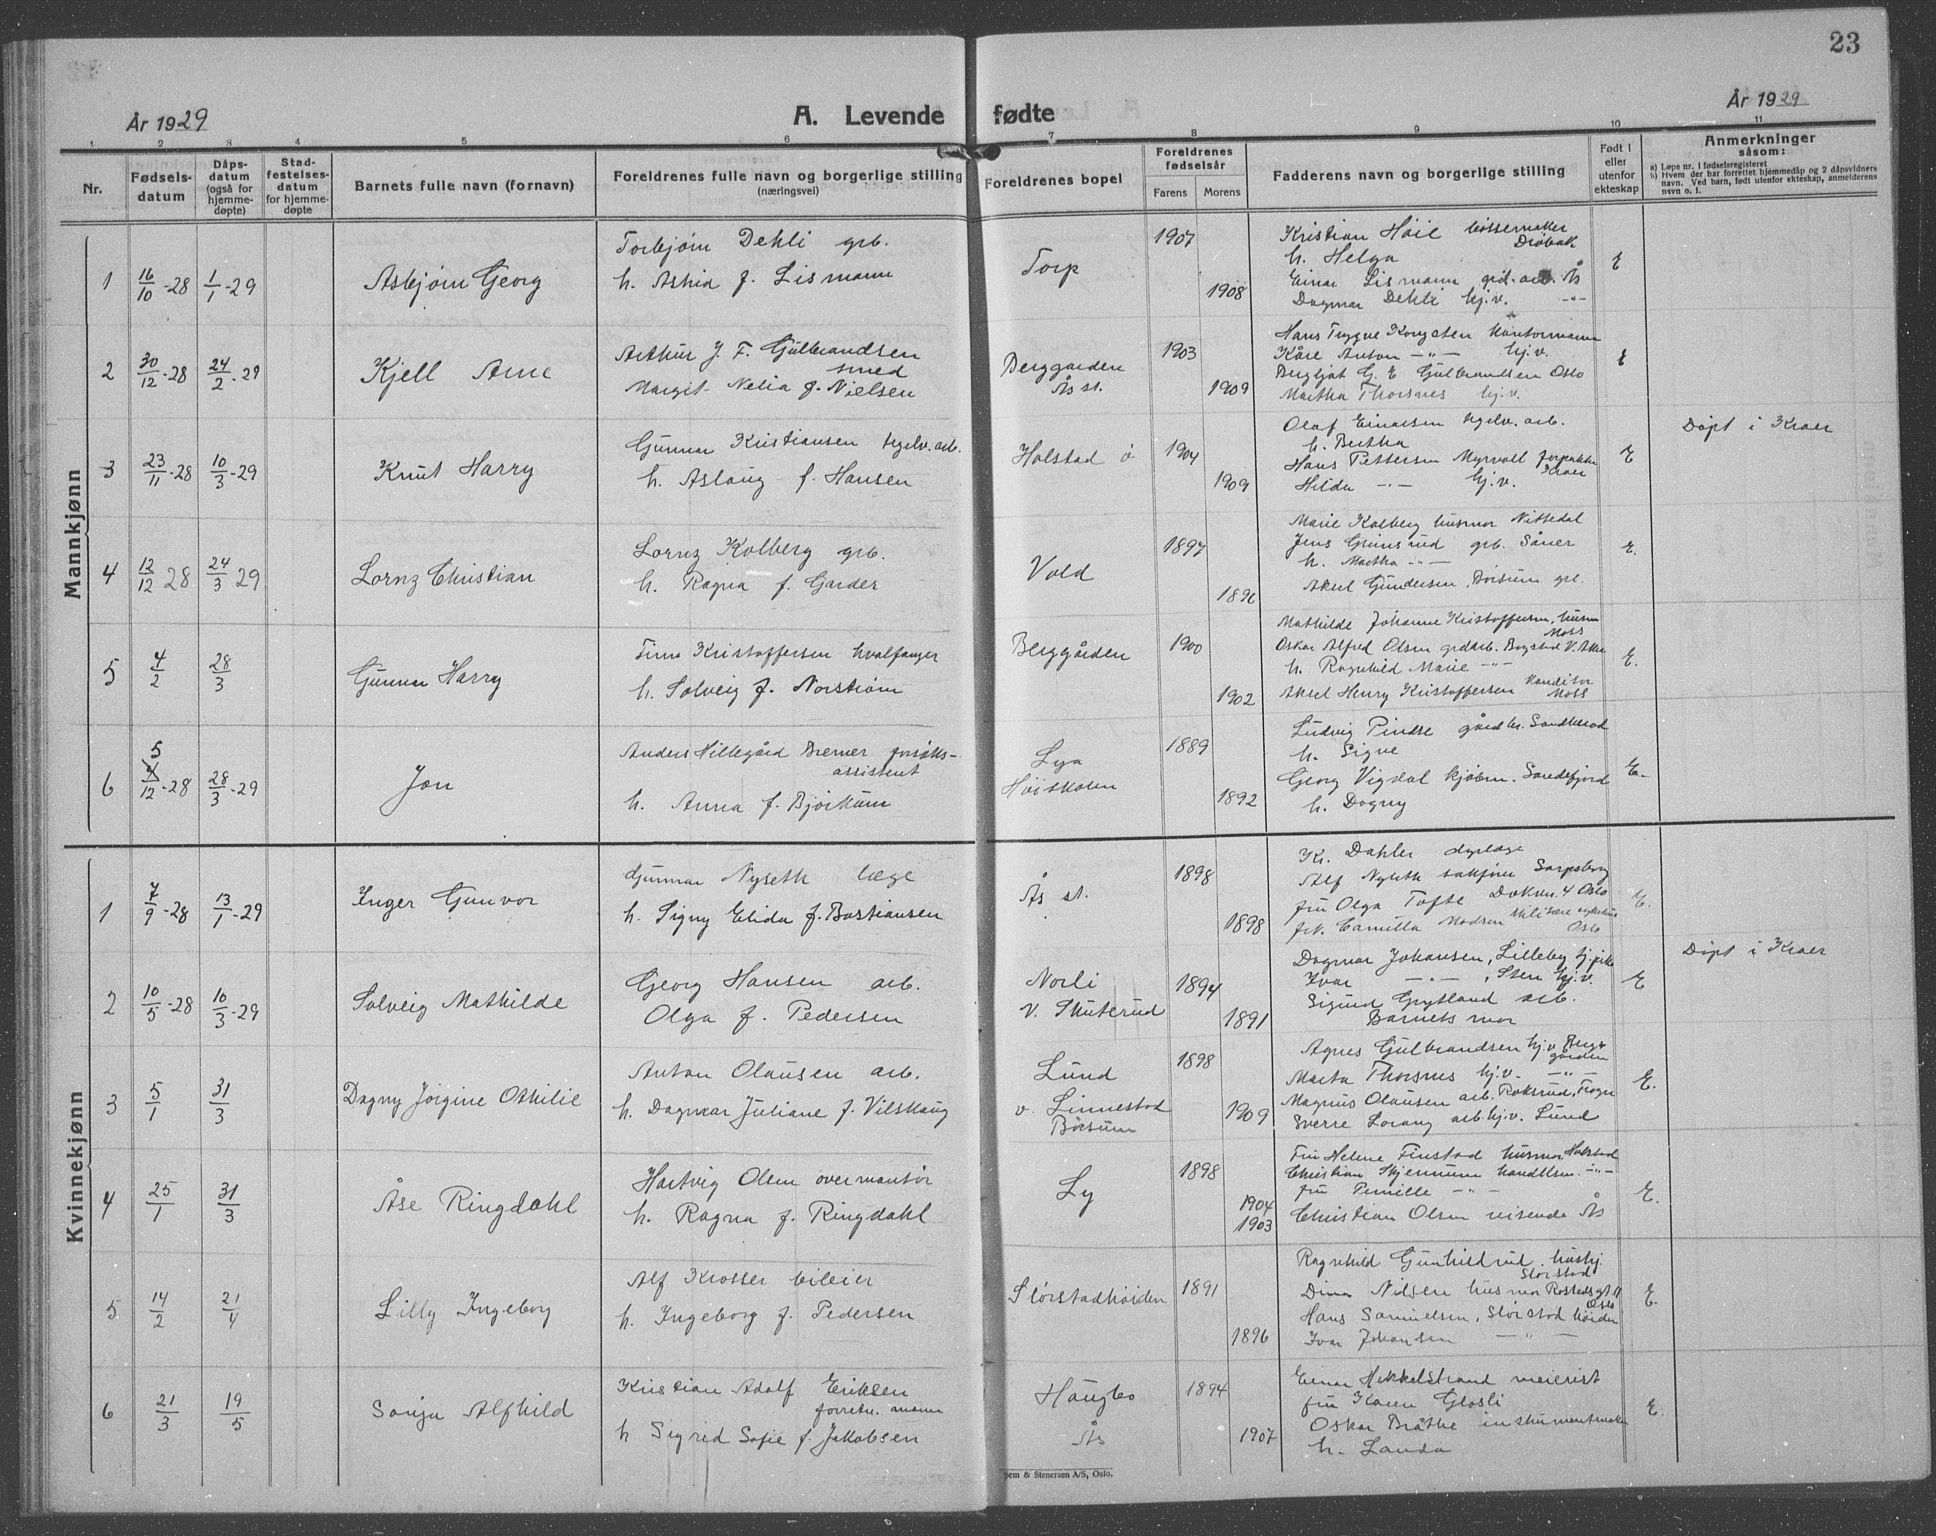 23
År 1929
A. Levende fødte
År 1929
1 2 3 4 5 6 7 8 9 10 11
Nr.
Fødsels-
datum
Dåps-
datum
(også for
hjemme-
døpte)
Stad-
festelses-
datum
for hjemme-
døpte
Barnets fulle navn (fornavn)
Foreldrenes fulle navn og borgerlige stilling
(næringsvei)
Foreldrenes bopel
Foreldrenes
fødselsår
Farens Morens
Fadderens navn og borgerlige stilling
Født i
eller
utenfor
ekteskap
Anmerkninger
såsom:
a) Løpe nr. i fødselsregisteret
b) Hvem der har forrettet hjemmedåp og 2 dåpsvidners
navn. Ved barn, født utenfor ekteskap, anmelderens
navn o. l.
Mannkjønn
1 16/10-28 1/1-29 Asbjørn Georg
Torbjørn Dehli grb.
h. Astrid f. Lismann
Torp
1907
1908
Kristian Høie bøssemaker
Drøbak
h. Helga
Einar Lismann grd. arb. Ås
Dagmar Dehli hj.v. -"-
E
2 30/12-28 24/2-29 Kjell Arne
Arthur J. F. Gulbrandsen
smed
Margit Nelia f. Nielsen
Berggarden
Ås st.
1903
1909
Hans Trygve Kongsten kontormann
Kåre Anton -"- hj.v.
Bergljot G. E Gulbrandsen Oslo
Martha Thorsnes hj.v.
E
3 23/11-28 10/3-29 Knut Harry
Gunnar Kristiansen teglv. arb.
h. Aslaug f. Hansen
Holstad ø
1904
1909
Olaf Einarsen teglv. arb.
h. Bertha
Hans Pettersen Myrvoll forpakter
Kroer
Hilda -"- hj.v.
E
Døpt i Kroer
4 12/12 28 24/3 29 Lornz Christian
Lornz Kolberg grb.
h. Ragna f. Garder
Vold
1897
1896
Marie Kolberg husmor Nittedal
Jens Grimsrud grb. Såner
h. Martha -"-
Aksel Gundersen, Borsum grb.
E.
5 4/2 28/3 Gunnar Harry
Finn Kristoffersen hvalfanger
h. Solveig f. Norstrøm
Berggården
1900
1902
Mathilde Johanne Kristoffersen, husm
Moss
Oskar Alfred Olsen grdarb. Bogstad V. Aker
h. Ragnhild Marie -"-
Aksel Henry Kristoffersen Konditor
Moss
E.
6 5/12-28 28/3-29 Jon
Anders Hillegård Bremer forsøks-
assistent
h. Anna f. Bjørkum
Lya
Høiskolen
1889
1892
Ludvig Pindse gårdbr. Sandherad
h. Signe
Georg Vigdal kjøbm. Sandefjord
h. Dagny
E.
Kvinnekjønn
1 7/9-28 13/1-29 Inger Gunvor
Gunnar Nyseth læge
h. Signy Elida f. Bastiansen
Ås st.
1898
1898
Kr. Dahler dyrlæge
Alf Nyseth sakfører Sarpsborg
fru Olga Tofte Dokvn. 4 Oslo
frk. Camilla Madsen Militære sykehus
Oslo
E.
2 10/5-28 10/3-29 Solveig Mathilde
Georg Hansen arb.
Olga f. Pedersen
Norli
v. Skuterud
1894
1891
Dagmar Johansen, Lilleby hj.pike
Ivar -"-, Sten hj.v.
Sigurd Grytland arb.
Barnets mor
E
Døpt i Kroer
3 5/1 31/3 Dagny Jørgine Othilie
Anton Olausen arb.
h. Dagmar Juliane f. Vilskaug
Lund
v. Linnestad
Borsum
1898
1909
Agnes Gulbrandsen hj.v. Berg-
gården
Marta Thorsnes hj.v. -"-
Magnus Olausen arb. Roksrud, Frogn
Sverre Lorang arb. hj.v. Lund
E.
4 25/1 31/3 Åse Ringdahl
Hartvig Olsen overmontør
h. Ragna f. Ringdahl
Ly
1898
1904
1903
Fru Helene Finstad husmor Holstad
Christian Skjennum handelsm. -"-
fru Pernille -"-
Christian Olsen reisende Ås
E.
5 14/2 21/4 Lilly Ingeborg
Alf Krosser bileier
h. Ingeborg f. Pedersen
Slørstadhøiden
1891
1896
Ragnhild Gunhildrud hushj.
Slørstad
Dina Nilsen husmor Rostedsgt. 11
Oslo
Hans Samuelsen, Slørstad høiden
Ivar Johansen -"-
E.
6 21/3 19/5 Sonja Alfhild
Kristian Adolf Eriksen
forretn. mann
h Sigrid Sofie f. Jakobsen
Haugbo
Ås
1894
1907
Einar Mikkelstrand meierist
fru Karen Glosli
Oskar Bråthe instrumentmaker
h. Landa
E.
Sem & Stenersen A/S, Oslo.